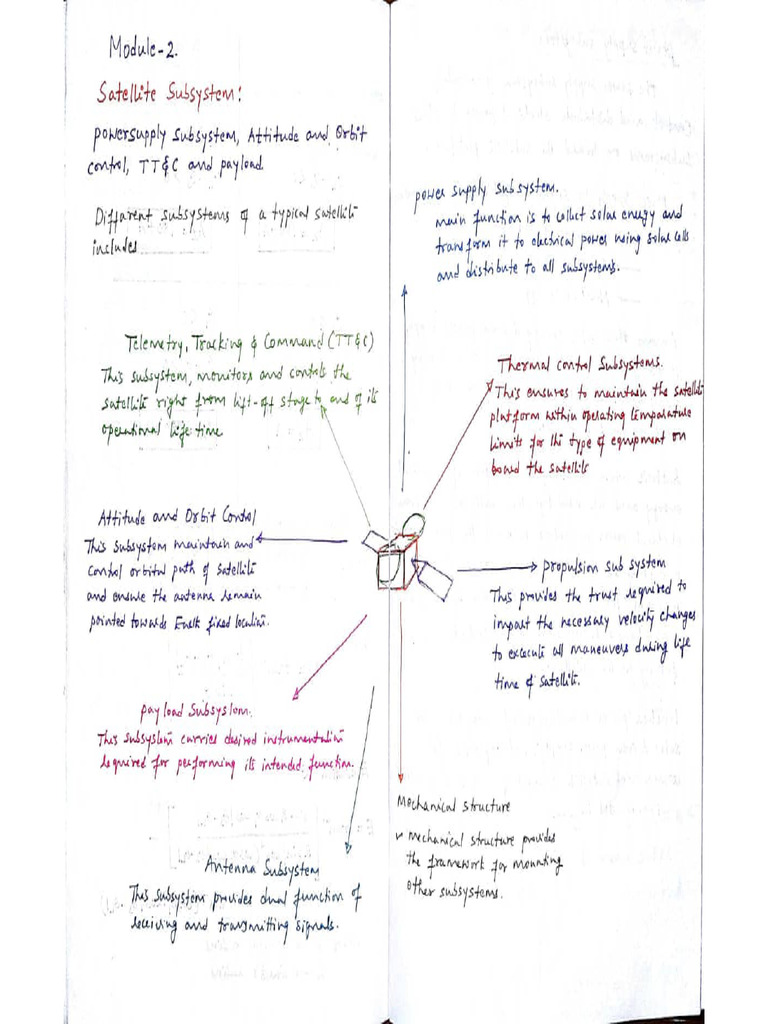 Module-2.
Satellite Subsystem:
powersupply subsystem, Attitude and Orbit
control, TT&C and payload.
Different subsystems of a typical satellite
includes
Telemetry, Tracking & Command (TT&C)
This subsystem, monitors and controls the
satellite right from lift-off stage to end of its
operational life time
Attitude and Orbit Control
This subsystem maintain and
control orbital path of satellite
and ensure the antenna remain
pointed towards Earth fixed location.
payload Subsystem.
This subsystem carries desired instrumentation
required for performing its intended function.
Antenna Subsystem
This subsystem provides dual function of
receiving and transmitting signals.
power supply subsystem.
main function is to collect solar energy and
transform it to electrical power using solar cells
and distribute to all subsystems.
Thermal control Subsystems.
This ensures to maintain the satellite
platform within operating temparature
limits for the type of equipment on
board the satellite
propulsion sub system
This provides the trust required to
impart the necessary velocity changes
to excecute all maneuvers during life
time of satellite.
Mechanical structure
✓ Mechanical structure provides
the framework for mounting
other subsystems.